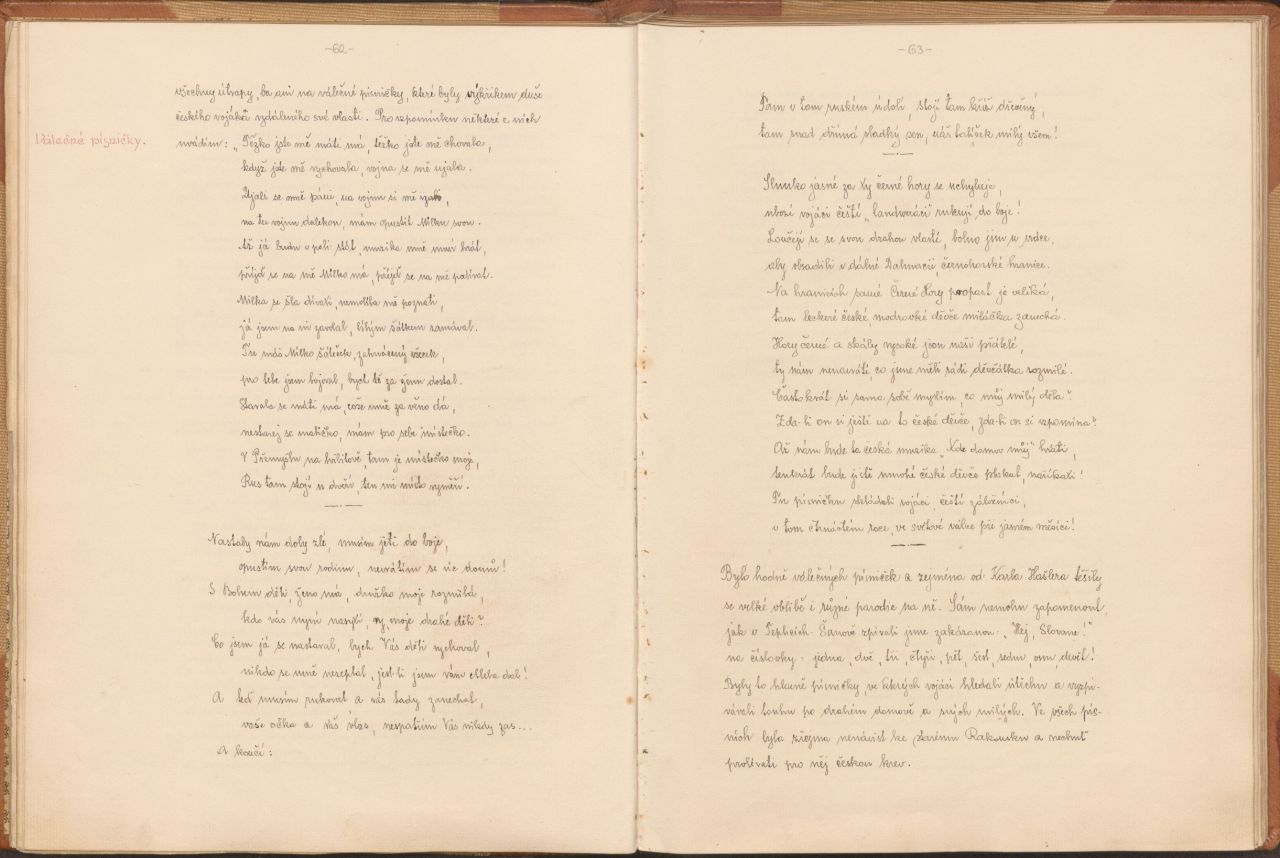 -62-
všechny útrapy, ba ani na válečné písničky, které byly výkřikem duše
českého vojáka vzdáleného své vlasti. Pro vzpomínku některé z nich
Válečné písničky.
uvádím: „Těžko jste mě máti má, těžko jste mě chovala,
když jste mě vychovala, vojna se mě ujala.
Ujali se mně páni, na vojnu si mě vzali,
na tu vojnu dalekou, mám opustit Milku svou.
Až já budu v poli stát, muzika mně musí hrát,
přijď se na mě Milko má, přijď se na mě podívat.
Milka se šla dívati, nemohla mě poznati,
já jsem na ni zavolal, bílým šátkem zamával.
Tu máš Milko šáteček, zakrvácený všecek,
pro tebe jsem bojoval, bych tě za ženu dostal.
Starala se máti má, cože mně za věno dá,
nestarej se matičko, mám pro sebe místečko.
V Přemyšlu na hřbitově tam je místečko moje,
Rus tam stojí u dveří, ten mi místo vyměří.
Nastaly nám doby zlé, musím jeti do boje,
opustím svou rodinu, nevrátím se víc domů!
S Bohem děti, ženo má, družko moje rozmilá,
kdo vás nyní nasytí, vy moje drahé děti?
Co jsem já se nastaral, bych Vás děti vychoval,
nikdo se mně nezeptal, jest-li jsem vám chleba dal!
A teď musím rukovat a vás tady zanechat,
vaše očka a váš vlas, nespatřím Vás nikdy zas...
A končí:
-63-
Tam v tom ruském údolí, stojí tam kříž dřevěný,
tam snad dřímá sladký sen, náš tatíček milý všem!
Slunko jasné za ty černé hory se uchyluje,
ubozí vojáci čeští „landweráci" rukují do boje!
Loučejí se se svou drahou vlastí, bolno jim u srdce,
aby obsadili v dálné Dalmacii, černohorské hranice.
Na hranicích samé Černé Hory propast je veliká,
tam leckeré české, modrooké děvče miláčka zanechá.
Hory černé a skály vysoké jsou naši přátelé,
ty nám nenavrátí, co jsme měli rádi děvčátka rozmilé.
Častokrát si sama sobě myslím, co můj milý dělá?
Zda-li on si ještě na to české děvče, zda-li on si vzpomíná?
Až nám bude ta česká muzika „Kde domov můj" hráti,
tenkrát bude jistě mnohé české děvče plakat, naříkati!
Tu písničku skládali vojáci, čeští záložníci,
v tom čtrnáctém roce, ve světové válce při jasném měsíci!
Bylo hodně válečných písniček a zejména od Karla Hašlera těšily
se velké oblibě i různé parodie na ně. Sám nemohu zapomenout,
jak v Teplicích-Šanově zpívali jsme zakázanou: „Hej, Slované!"
na číslovky: jedna, dvě, tři, čtyři, pět, šest, sedm, osm, devět!
Byly to hlavně písničky, ve kterých vojáci hledali útěchu a vyzpí-
vávali touhu po drahém domově a svých milých. Ve všech pís-
ních byla zřejma nenávist ke starému Rakousku a neochuť
prolévati pro něj českou krev.